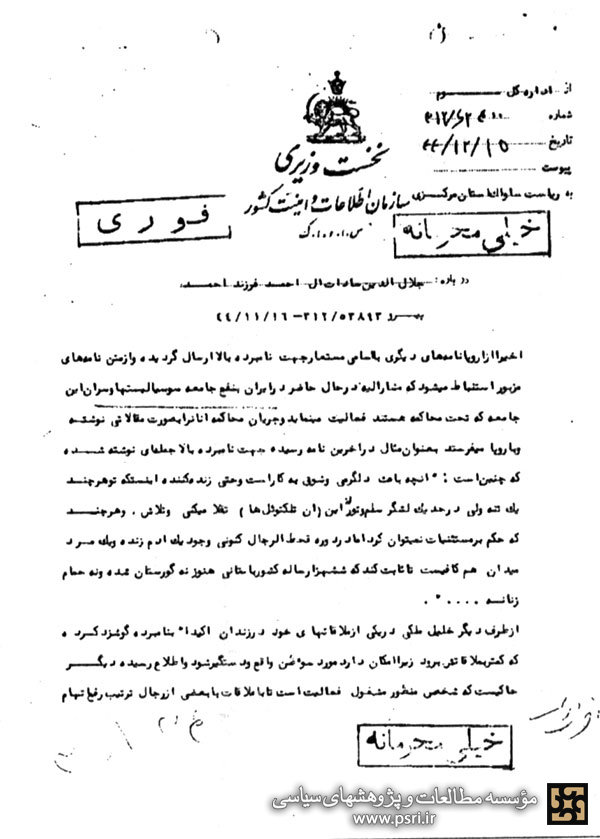 از اداره کل سوم
شماره
تاریخ ۴۴/۱۲/۱۵
پیوست
نخست وزیری
سازمان اطلاعات و امنیت کشور
س.ا.و.ا.ک
به ریاست ساواک استان مرکزی
فوری
خیلی محرمانه
درباره : جلال الدین سادات ال احمد فرزند احمد
پیرو ۳۱۲/۵۳۸۹۳ - ۴۴/۱۱/۱۶
اخیرا از اروپا نامه‌های دیگری با اسامی مستعار جهت نامبرده بالا ارسال گردیده و از متن نامه‌های
مزبور استنباط میشود که مشارالیه در حال حاضر در ایران بنفع جامعه سوسیالیستها و سران این
جامعه که تحت محاکمه هستند فعالیت مینماید و جریان محاکمه انانرا بصورت مقالاتی نوشته
و باروپا میفرستد بعنوان مثال در اخرین نامه رسیده جهت نامبرده بالا جمله‌ای نوشته شده
که چنین است : " انچه باعث دلگرمی وشوق به کار است وحتی زنده کننده اینستکه تو هرچند
یک تنه ولی در حد یک لشگر سلم و تور از این (ان تلکتوئل ها ) تقلا میکنی وتلاش . وهرچند
که حکم بر مستثنیات نمیتوان کرد اما در دوره قحط الرجال کنونی وجود یک ادم زنده ویک مرد
میدان هم کافیست تا ثابت کند که ششهزار ساله کشور باستانی هنوز نه گورستان شده ونه حمام
زنانه .... " .
ازطرف دیگر خلیل ملکی در یکی از ملاقاتهای خود در زندان اکیدا " بنامبرده گوشزد کرده
که کمتر بملاقاتش برود زیرا امکان دارد مورد سوءظن واقع و دستگیر شود و اطلاع رسیده دیگر
حاکیست که شخص منظور مشغول فعالیت است تا با ملاقات با بعضی از رجال ترتیب رفع اتهام
خیلی محرمانه
مؤسسه مطالعات و پژوهشهای سیاسی
www.psri.ir